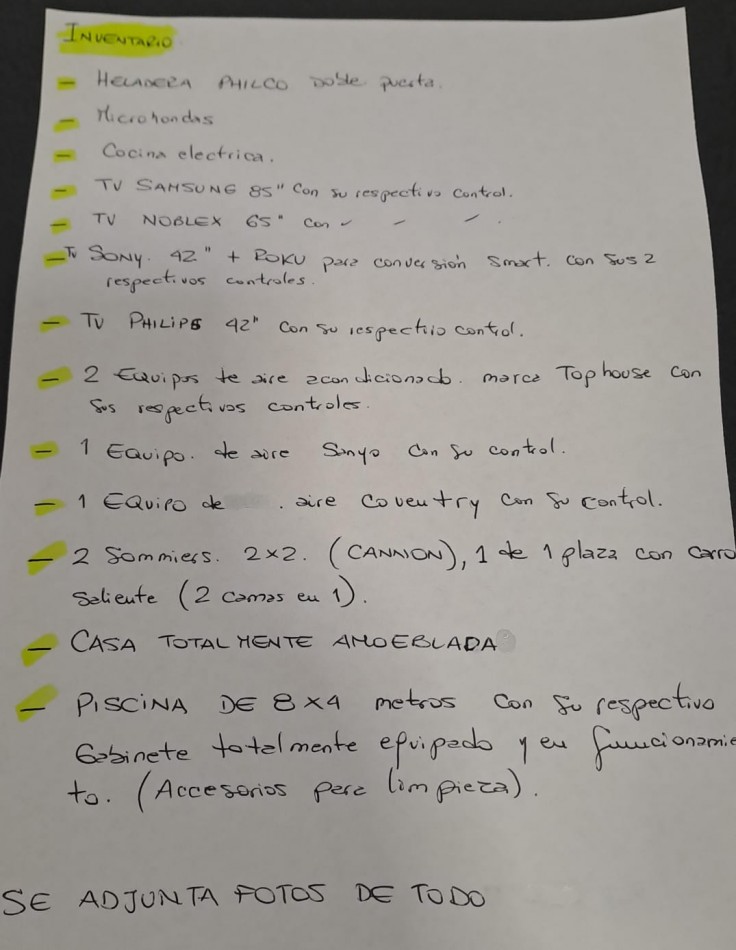 INVENTARIO
- HELADERA PHILCO Doble puerta.
- Microhondas
- Cocina electrica.
- TV SAMSUNG 85" Con su respectivo Control.
- TV NOBLEX 65" Con ✓ - ✓.
- TV SONY. 42" + ROKU para conversión Smart. con sus 2
respectivos controles.
- TV PHILIPS 42" Con su respectivo control.
- 2 Equipos de aire acondicionado. marca Top house con
sus respectivos controles.
- 1 Equipo. de aire Sanyo con su control.
- 1 EQUIPO de . aire Coventry con su control.
- 2 Sommiers. 2x2. (CANNION), 1 de 1 plaza con carro
Saliente (2 camas en 1).
- CASA TOTALMENTE AMOEBLADA
- PISCINA DE 8x4 metros con su respectivo
Gabinete totalmente equipado y en funcionamie
to. (Accesorios para limpieza).
SE ADJUNTA FOTOS DE TODO